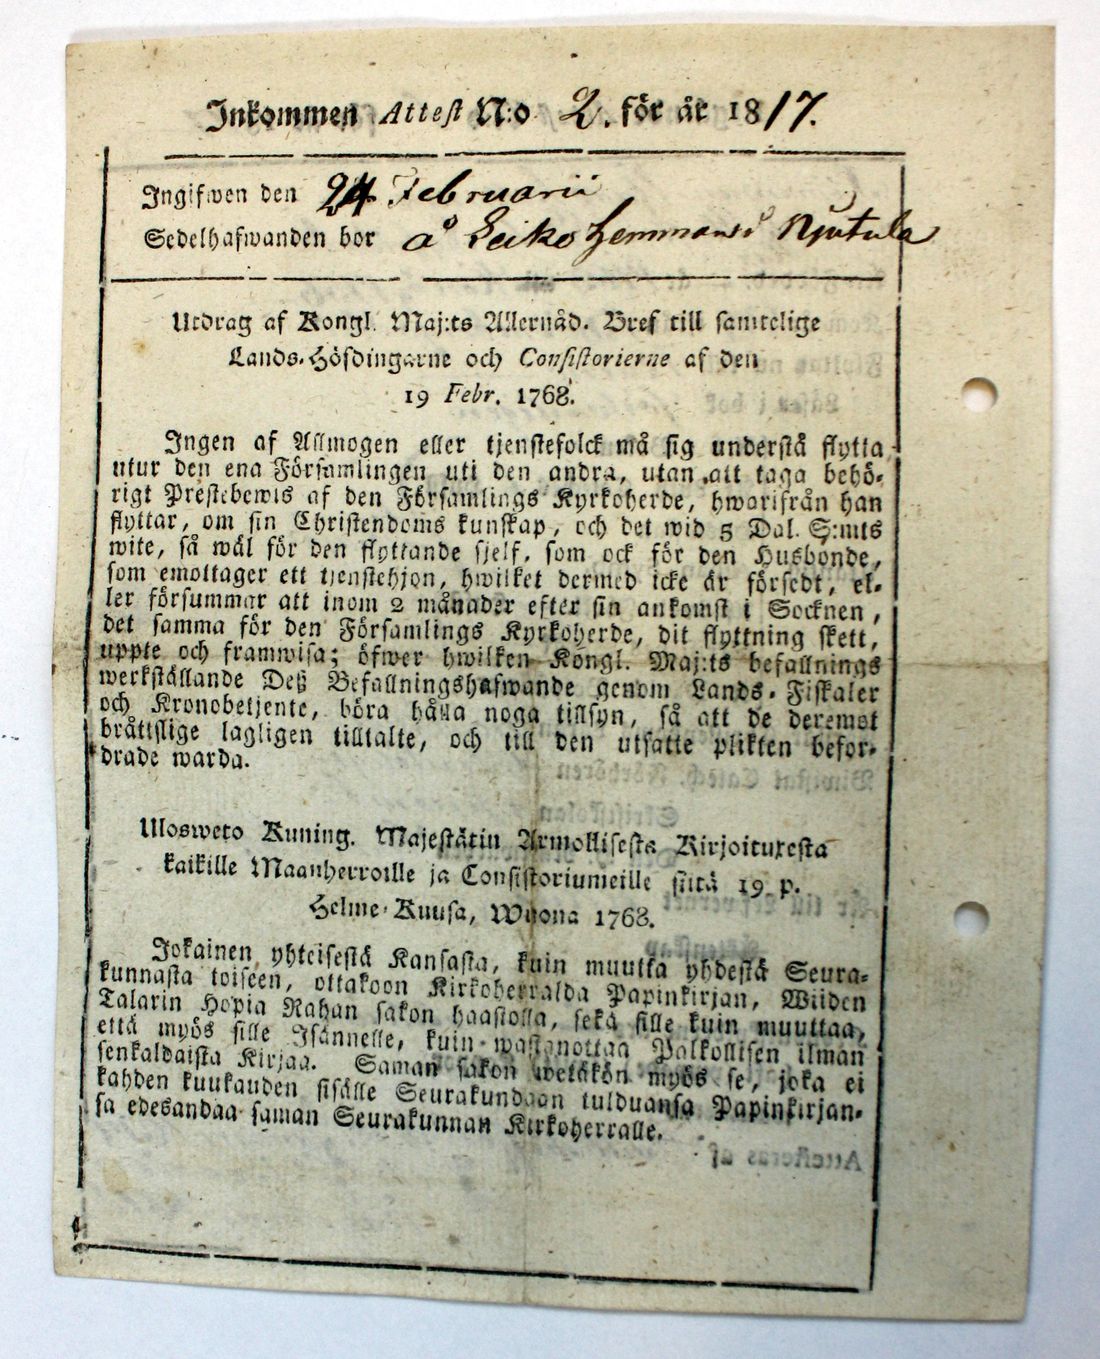 Inkommen Attest N:o 2. för år 1817.
Ingifwen den 24 Februarii
Sedelhafwanden bor å Leiko Hemmans Njutula
Utdrag af Kongl. Maj:ts Allernåd. Bref till samtelige
Lands-Höfdingarne och Consistorierne af den
19 Febr. 1768.
Ingen af Allmogen eller tjenstefolck må sig understå flytta
utur den ena Församlingen uti den andra, utan att taga behö-
rigt Prestebewis af den Församlings Kyrkoherde, hwarifrån han
flyttar, om sin Christendoms kunskap, och det wid 5 Dal. S:mts
wite, så wäl för den flyttande sjelf, som ock för den Husbonde,
som emottager ett tjenstehjon, hwilket dermed icke är försedt, el-
ler försummar att inom 2 månader efter sin ankomst i Socknen,
det samma för den Församlings Kyrkoherde, dit flyttning skett,
uppte och framwisa; öfwer hwilken Kongl. Maj:ts befallnings
werkställande Deß Befallningshafwande genom Lands-Fiskaler
och Kronobetjente, böra hålla noga tillsyn, så att de deremot
bråttslige lagligen tilltalte, och till den utsatte plikten befor-
drade warda.
Ulosweto Kuning. Majestätin Armollisesta Kirjoituxesta
kaikille Maanherroille ja Consistoriumeille siitä 19 p.
Helme-Kuusa, Wuona 1768.
Jokainen yhteisestä Kansasta, kuin muutta yhdestä Seura-
kunnasta toiseen, ottakoon Kirkoherralda Papinkirjan, Wiiden
Talarin Hopia Rahan sakon haastolla, sekä sille kuin muuttaa,
että myös sille Isännelle, kuin wastanottaa Palkollisen ilman
senkaldaista Kirjaa. Saman sakon wetäkön myös se, joka ei
kahden kuukauden sisälle Seurakundaan tulduansa Papinkirjan-
sa edesandaa saman Seurakunnan Kirkoherralle.